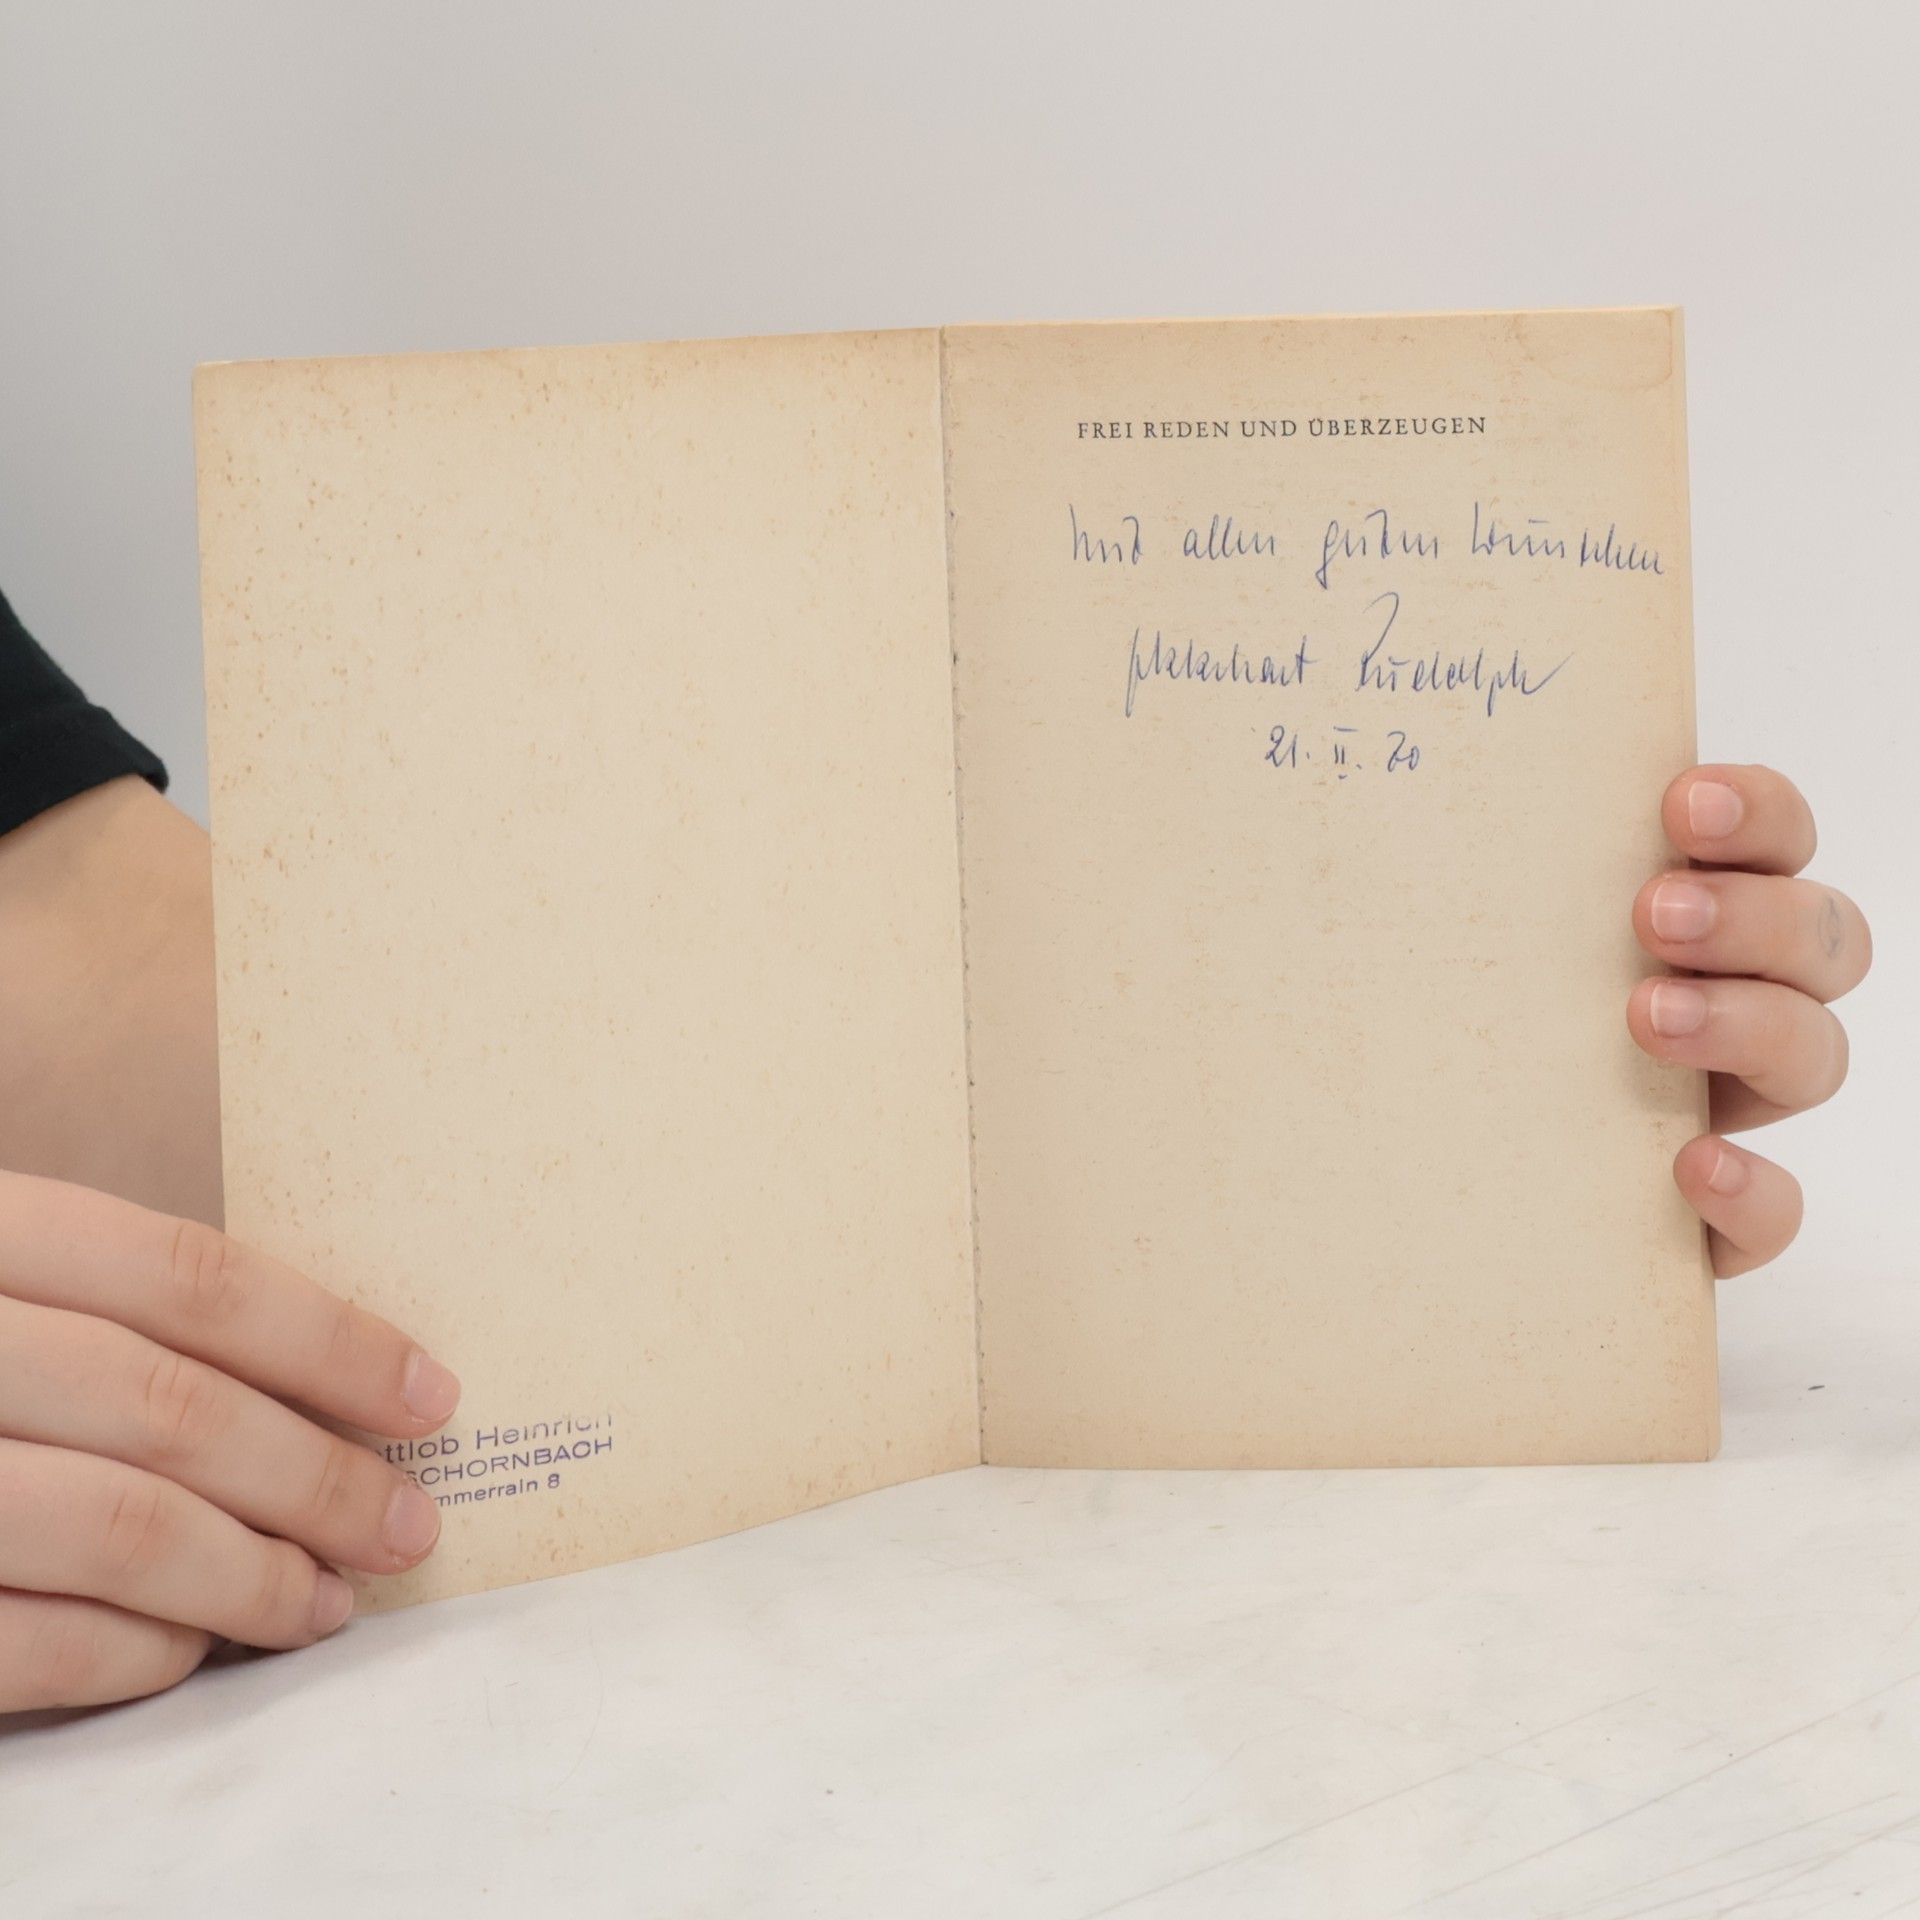 ttlob Heinrich
SCHORNBACH
mmerrain 8
FREI REDEN UND ÜBERZEUGEN
Mit allen guten Wünschen
Ekkehart Rudolph
21. II. 70